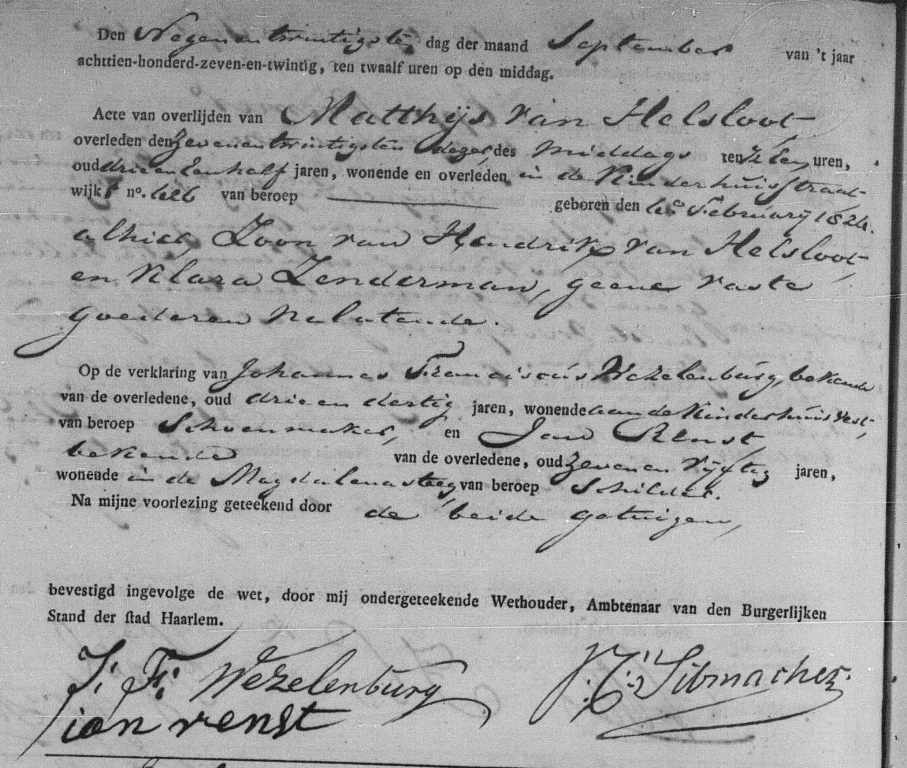 Den Negenentwintigsten dag der maand September van 't jaar
achttien-honderd-zeven-en-twintig, ten twaalf uren op den middag.
Acte van overlijden van Matthijs van Helsloot,
overleden den Zevenentwintigsten dezer des middags ten uren,
oud drie en een half jaren, wonende en overleden in de Kinderhuisstraat
wijk no. 626 van beroep geboren den Februarij 1824.
alhier, Zoon van Hendrik van Helsloot,
en Klara Zenderman, geene vaste
goederen nalatende.
Op de verklaring van Johannes Franciscus Wezelenburg, bekende
van de overledene, oud drie en dertig jaren, wonende aan de Kinderhuisvest,
van beroep Schoenmaker, en Jan Renst,
bekende van de overledene, oud zeven en vijftig jaren,
wonende in de Magdalenasteeg van beroep Schilder.
Na mijne voorlezing geteekend door de beide getuigen,
bevestigd ingevolge de wet, door mij ondergeteekende Wethouder, Ambtenaar van den Burgerlijken
Stand der stad Haarlem.
J: F: Wezelenburg
jan renst
Sibmacher